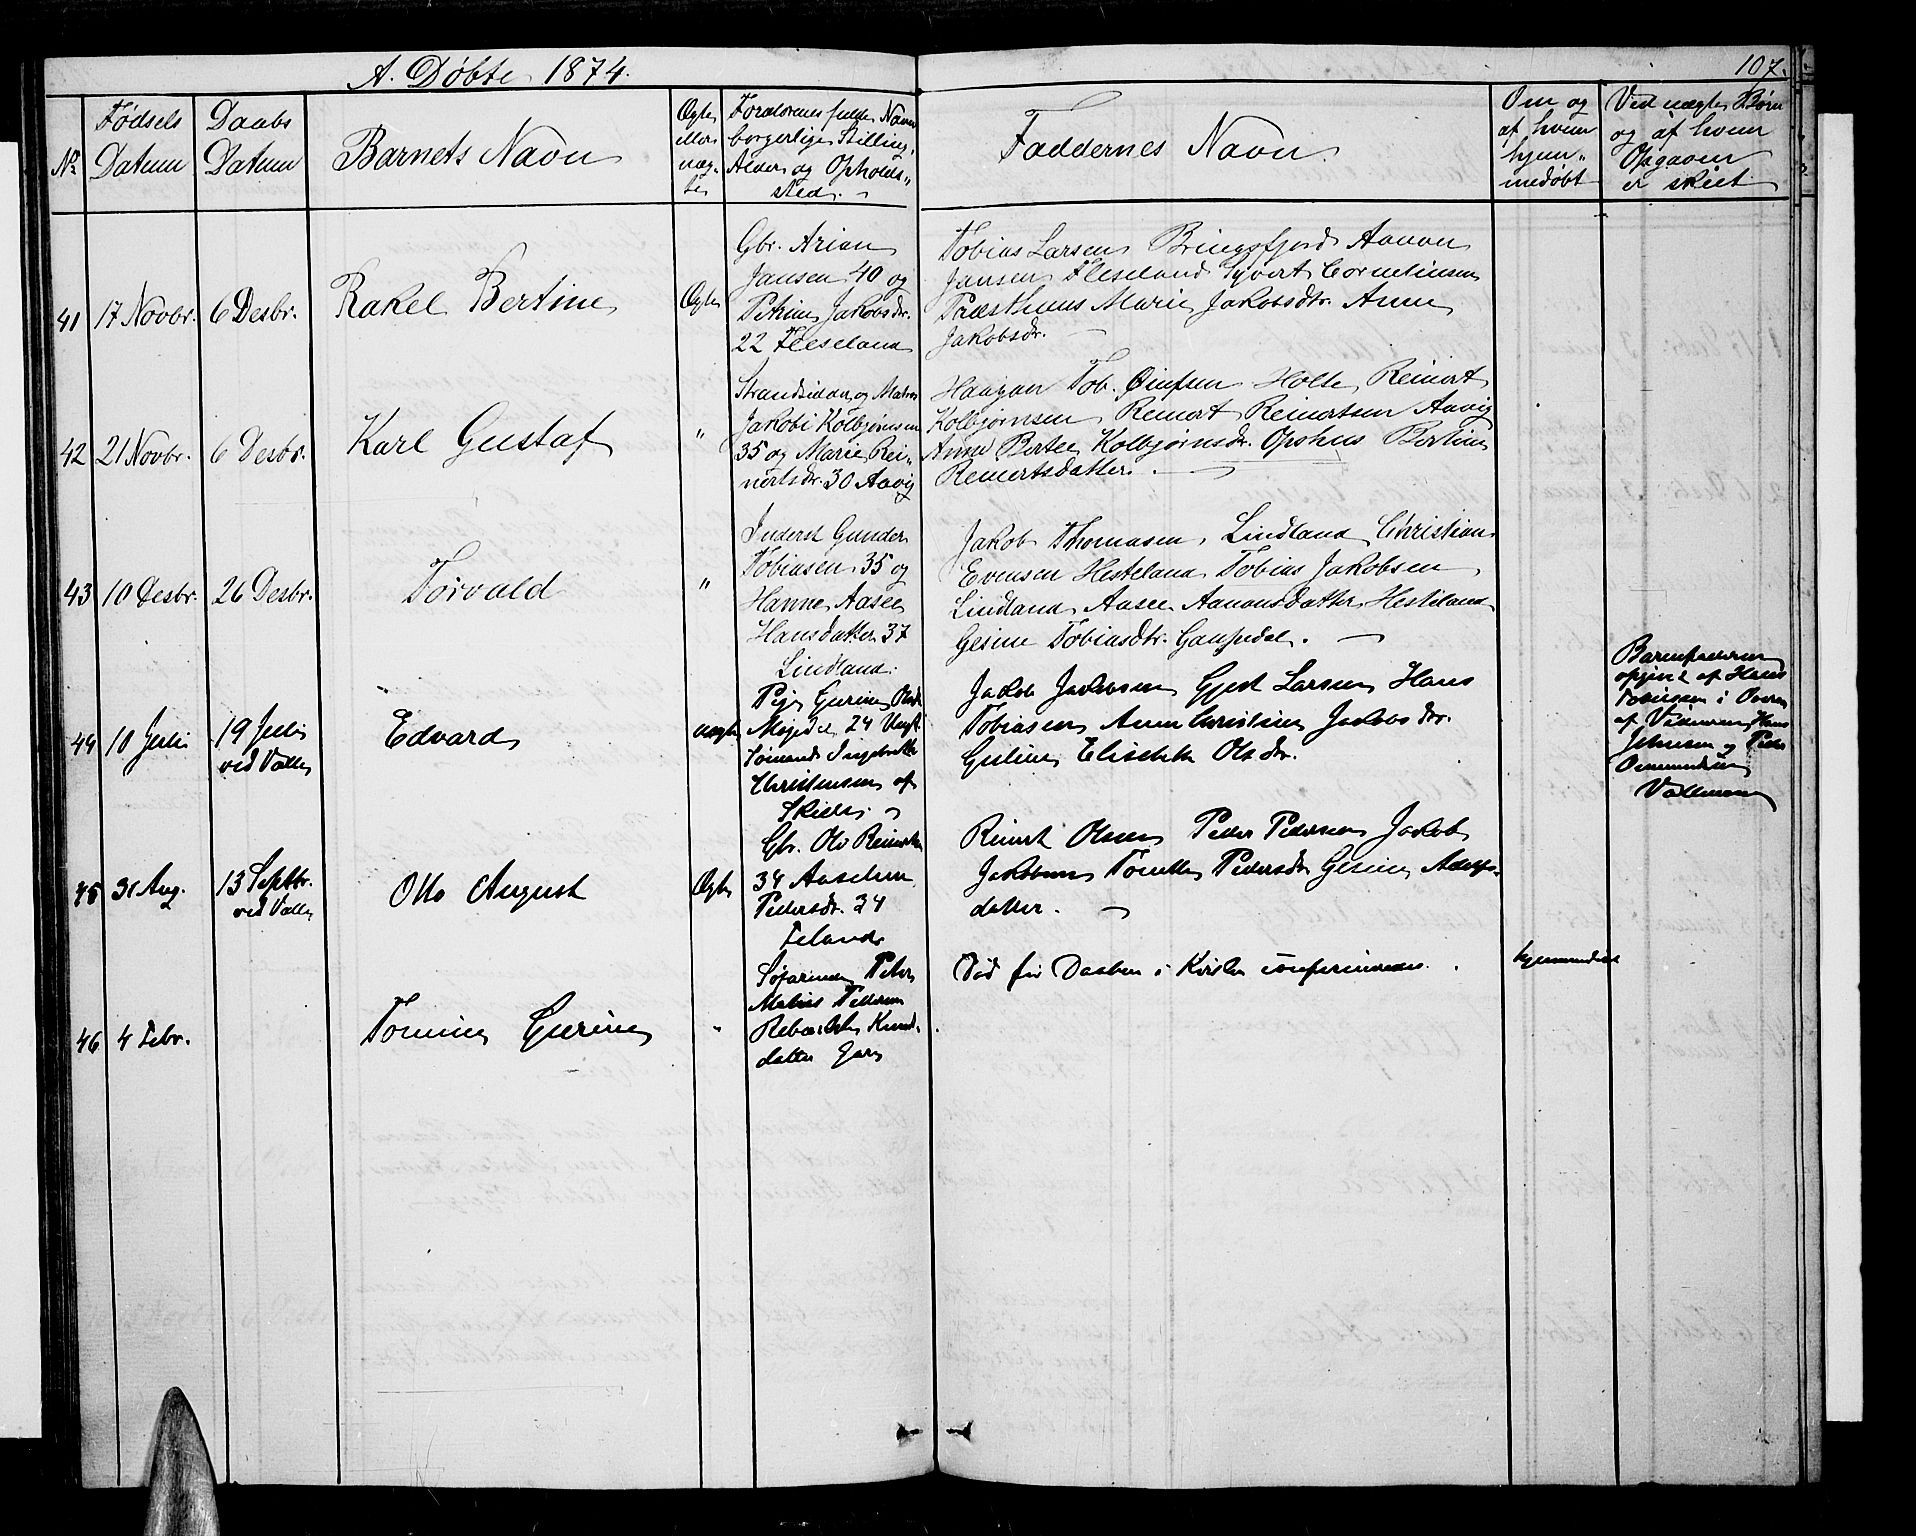 A. Døbte 1874.
107.
No
Fødsels Datum
Daabs Datum
Barnets Navn
Ægte eller uægte
Forældrenes fulde Navn borgerlige Stilling, Alder og Opholdssted.
Faddernes Navn.
Om og af hvem hjemmedøbt
Ved uægte Børn og af hvem Opgaven er skeet.
41
17 Novbr.
6 Desbr.
Rakel Bertine
Ægte
Gbr. Arian
Jansen 40 og
Petrine Jakobsdr.
22 Fleseland
Tobias Larsen Bringsfjord Aanon
Jansen Fleseland Syvert Corneliusen
Præsthuus Marie Jakobsdtr. Anne
Jakobsdr.
42
21 Novbr.
6 Desbr.
Karl Gustaf
"
Strandsidder og Matros
Jakob Kolbjørnsen
35 og Marie Rei-
nertsdr. 30 Aavig
Haagan Tob. Holte Reinert
Kolbjørnsen Reinert Reinertsen Aavig
Anne Bertee Kolbjørnsdr. Opshus Bertine
Reinertsdatter.
43
10 Desbr.
26 Desbr.
Torvald
"
Inderst Gunder
Tobiasen 35 og
Hanne Aasee
Hansdatter 37
Lindland.
Jakob Thomasen, Lindland Christian
Evensen Hesteland Tobias Jakobsen
Lindland Aasee Aanonsdatter Hesteland
Gesine Tobiasdtr.
44
10 Juli
19 Juli
ved Valle
Edvard
uægte
Pige Gurine Olsdr.
24 Ungk.
Sømand
Christensen af
Jakob Jakobsen Gjert Larsen Hans
Tobiasen Anne Christine Jakobsdr.
Guline Elisebeth Olsdr.
Barnefaderen
opgivet af Hans
Tobiassen
af Hans
Jensen og Peder
45
31 Aug.
13 Septbr.
ved Valle
Otto August
Ægte
Gbr. Ole Reinertsen
34
Pedersdr. 34
Reinert Olsen Peder Pedersen Jakob
Jakobsen Tonette Pedersdr Gesine
datter.
46
4 Febr.
Tomine Gurine
"
Søfarende Peter
Matias Pedersen
Knuds-
datter
Død før Daaben i Kirken
hjemmedøbt